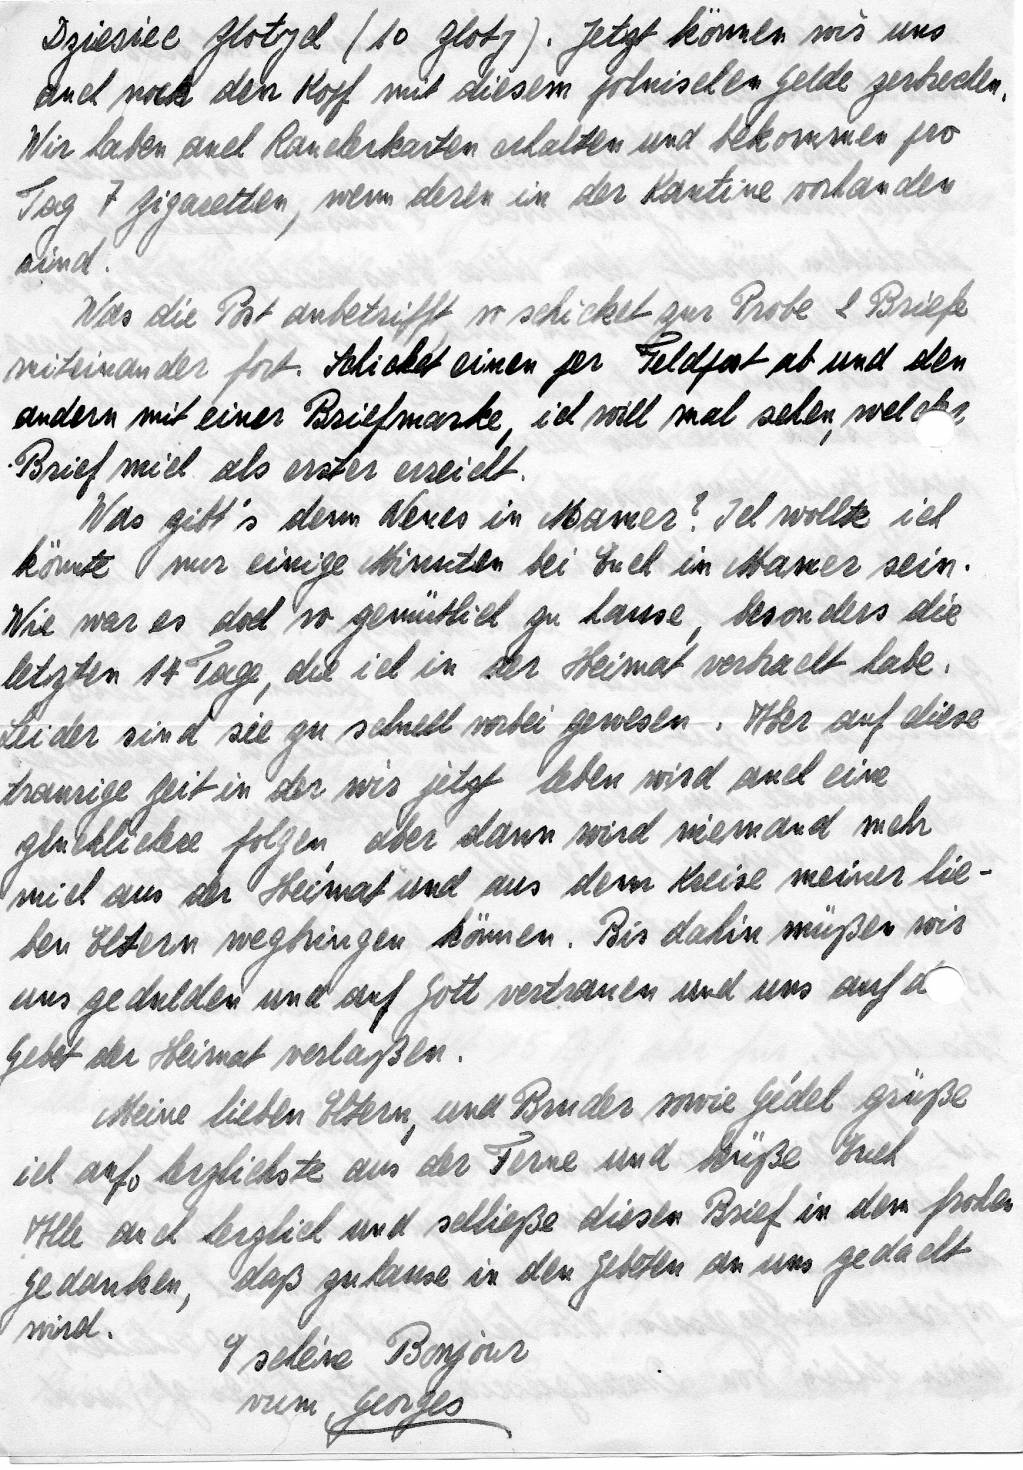 Dziesiec Zlotyd (10 Zloty). Jetzt können wir uns
auch noch den Kopf mit diesem polnischen Gelde zerbrechen.
Wir haben auch Raucherkarten erhalten und bekommen pro
Tag 7 Zigaretten, wenn deren in der Kantine vorhanden
sind.
Was die Post anbetrifft so schicket zur Probe 2 Briefe
miteinander fort. Schicket einen per Feldpost ab und den
andern mit einer Briefmarke, ich will mal sehen, welcher
Brief mich als erster erreicht.
Was gibt's denn Neues in Mamer? Ich wollte ich
könnte nur einige Minuten bei Euch in Mamer sein.
Wie war es doch so gemütlich zu hause, besonders die
letzten 14 Tage, die ich in der Heimat verbracht habe.
Leider sind sie zu schnell vorbei gewesen. Aber auf diese
traurige Zeit in der wir jetzt leben wird auch eine
glücklichere folgen, aber dann wird niemand mehr
mich aus der Heimat und aus dem Kreise meiner lie-
ben Eltern wegbringen können. Bis dahin müßen wir
uns gedulden und auf Gott vertrauen und uns auf d
Gebet der Heimat verlaßen.
Meine lieben Eltern, und Bruder sowie Gédel grüße
ich aufs herzlichste aus der Ferne und küße Euch
Alle auch herzlich und schließe diesen Brief in dem frohen
Gedanken, daß zuhause in den Gebeten an uns gedacht
wird.
E schéine Bonjour
vum Georges